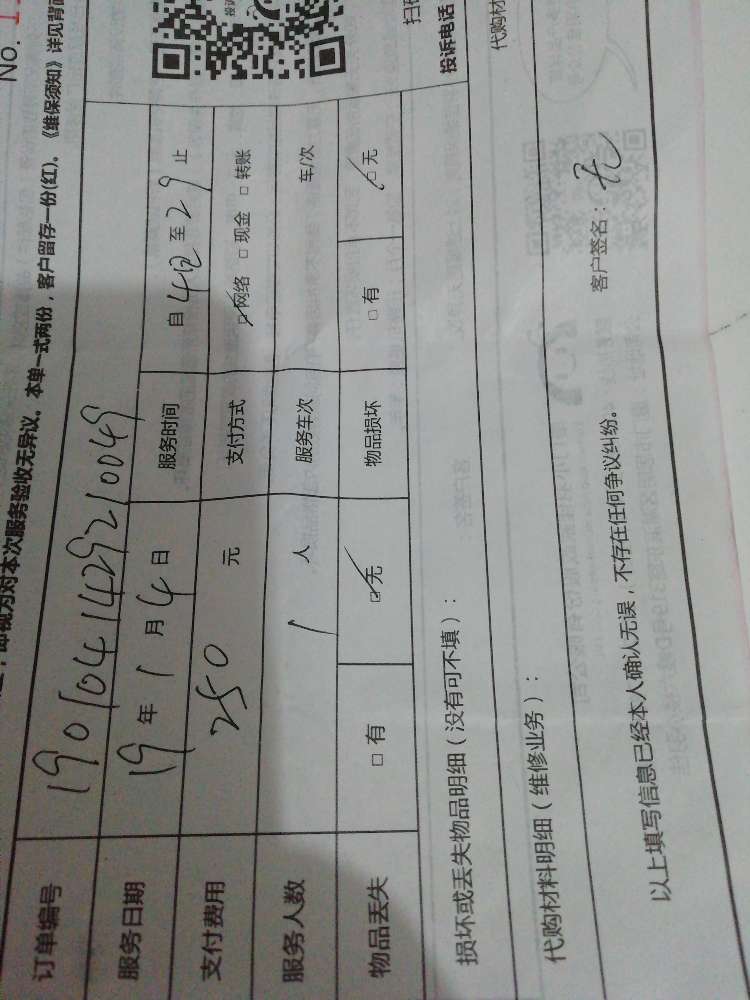 No. 1
即视为对本次服务验收无异议。本单一式两份，客户留存一份(红)。《维保须知》详见背面
订单编号 1901041429210049
服务日期 19 年 1 月 4 日 服务时间 自 至 29 止
支付费用 250 元 支付方式 ☑网络 □现金 □转账
服务人数 1 人 服务车次 车/次
物品丢失 □有 ☑无 物品损坏 □有 ☑无
投诉电话
损坏或丢失物品明细（没有可不填）：
代购材
代购材料明细（维修业务）：
客户签名：
以上填写信息已经本人确认无误，不存在任何争议纠纷。